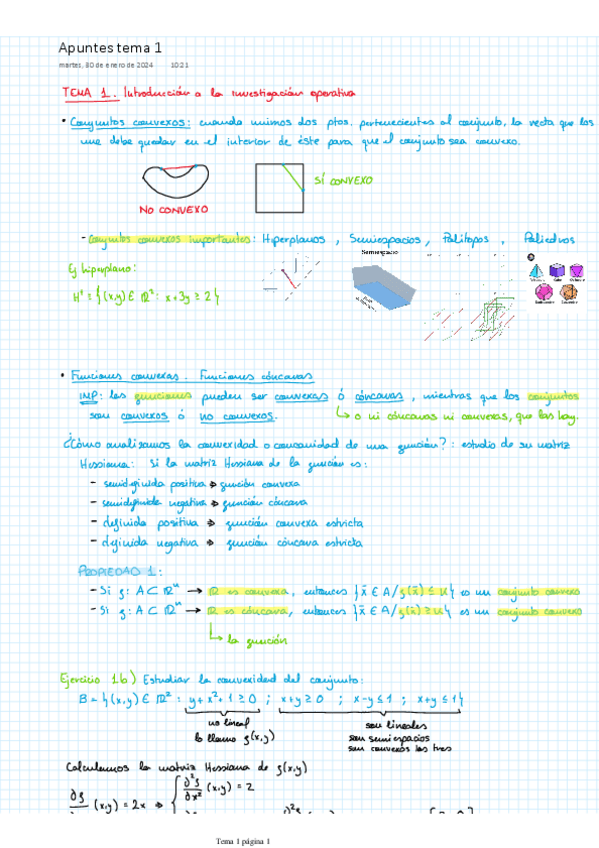 Apuntes tema 1
martes, 30 de enero de 2024 10:21
TEMA 1. Introducción a la investigación operativa
• Conjuntos convexos: cuando unimos dos ptos. pertenecientes al conjunto, la recta que los
une debe quedar en el interior de éste para que el conjunto sea convexo.
SÍ CONVEXO
NO CONVEXO
- Conjuntos convexos importantes: Hiperplanos, Semiespacios, Politopos, Poliedros
Semiespacio
Ej hiperplano:
H⁺ = {(x,y) ∈ ℝ²: x+3y ≥ 2}
• Funciones convexas. Funciones cóncavas
IMP: las funciones pueden ser convexas ó cóncavas, mientras que los conjuntos
son convexos ó no convexos. ↳ o ni cóncavas ni convexas, que las hay.
¿Cómo analizamos la convexidad o concavidad de una función?: estudio de su matriz
Hessiana: Si la matriz Hessiana de la función es:
- semidefinida positiva ⇒ función convexa
- semidefinida negativa ⇒ función cóncava
- definida positiva ⇒ función convexa estricta
- definida negativa ⇒ función cóncava estricta
PROPIEDAD 1:
- Si f: A ⊂ ℝⁿ → ℝ es convexa, entonces {x̄ ∈ A / f(x̄) ≤ k} es un conjunto convexo
- Si f: A ⊂ ℝⁿ → ℝ es cóncava, entonces {x̄ ∈ A / f(x̄) ≥ k} es un conjunto convexo
↳ la función
Ejercicio 1b) Estudiar la convexidad del conjunto:
B = {(x,y) ∈ ℝ²: y+x²+1 ≥ 0 ; x+y ≥ 0 ; x-y ≤ 1 ; x+y ≤ 1}
no lineal son lineales
lo llamo f(x,y) son semiespacios
son convexos los tres
Calculamos la matriz Hessiana de f(x,y)
∂f (x,y) = 2x ⇒ { ∂²f/∂x² (x,y) = 2
Tema 1 página 1